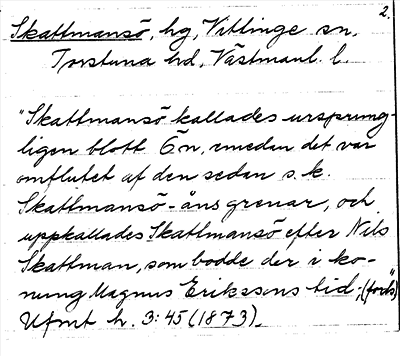 2.
Skattmansö, hg, Vittinge sn,
Torstuna hd, Västmanl. l.
"Skattmansö kallades ursprung-
ligen blott Ön, emedan det var
omflutet af den sedan s. k.
Skattmansö-åns grenar, och
uppkallades Skattmansö efter Nils
Skattman, som bodde der i ko-
nung Magnus Erikssons tid", (forts)
Ufmt h. 3: 45 (1873).